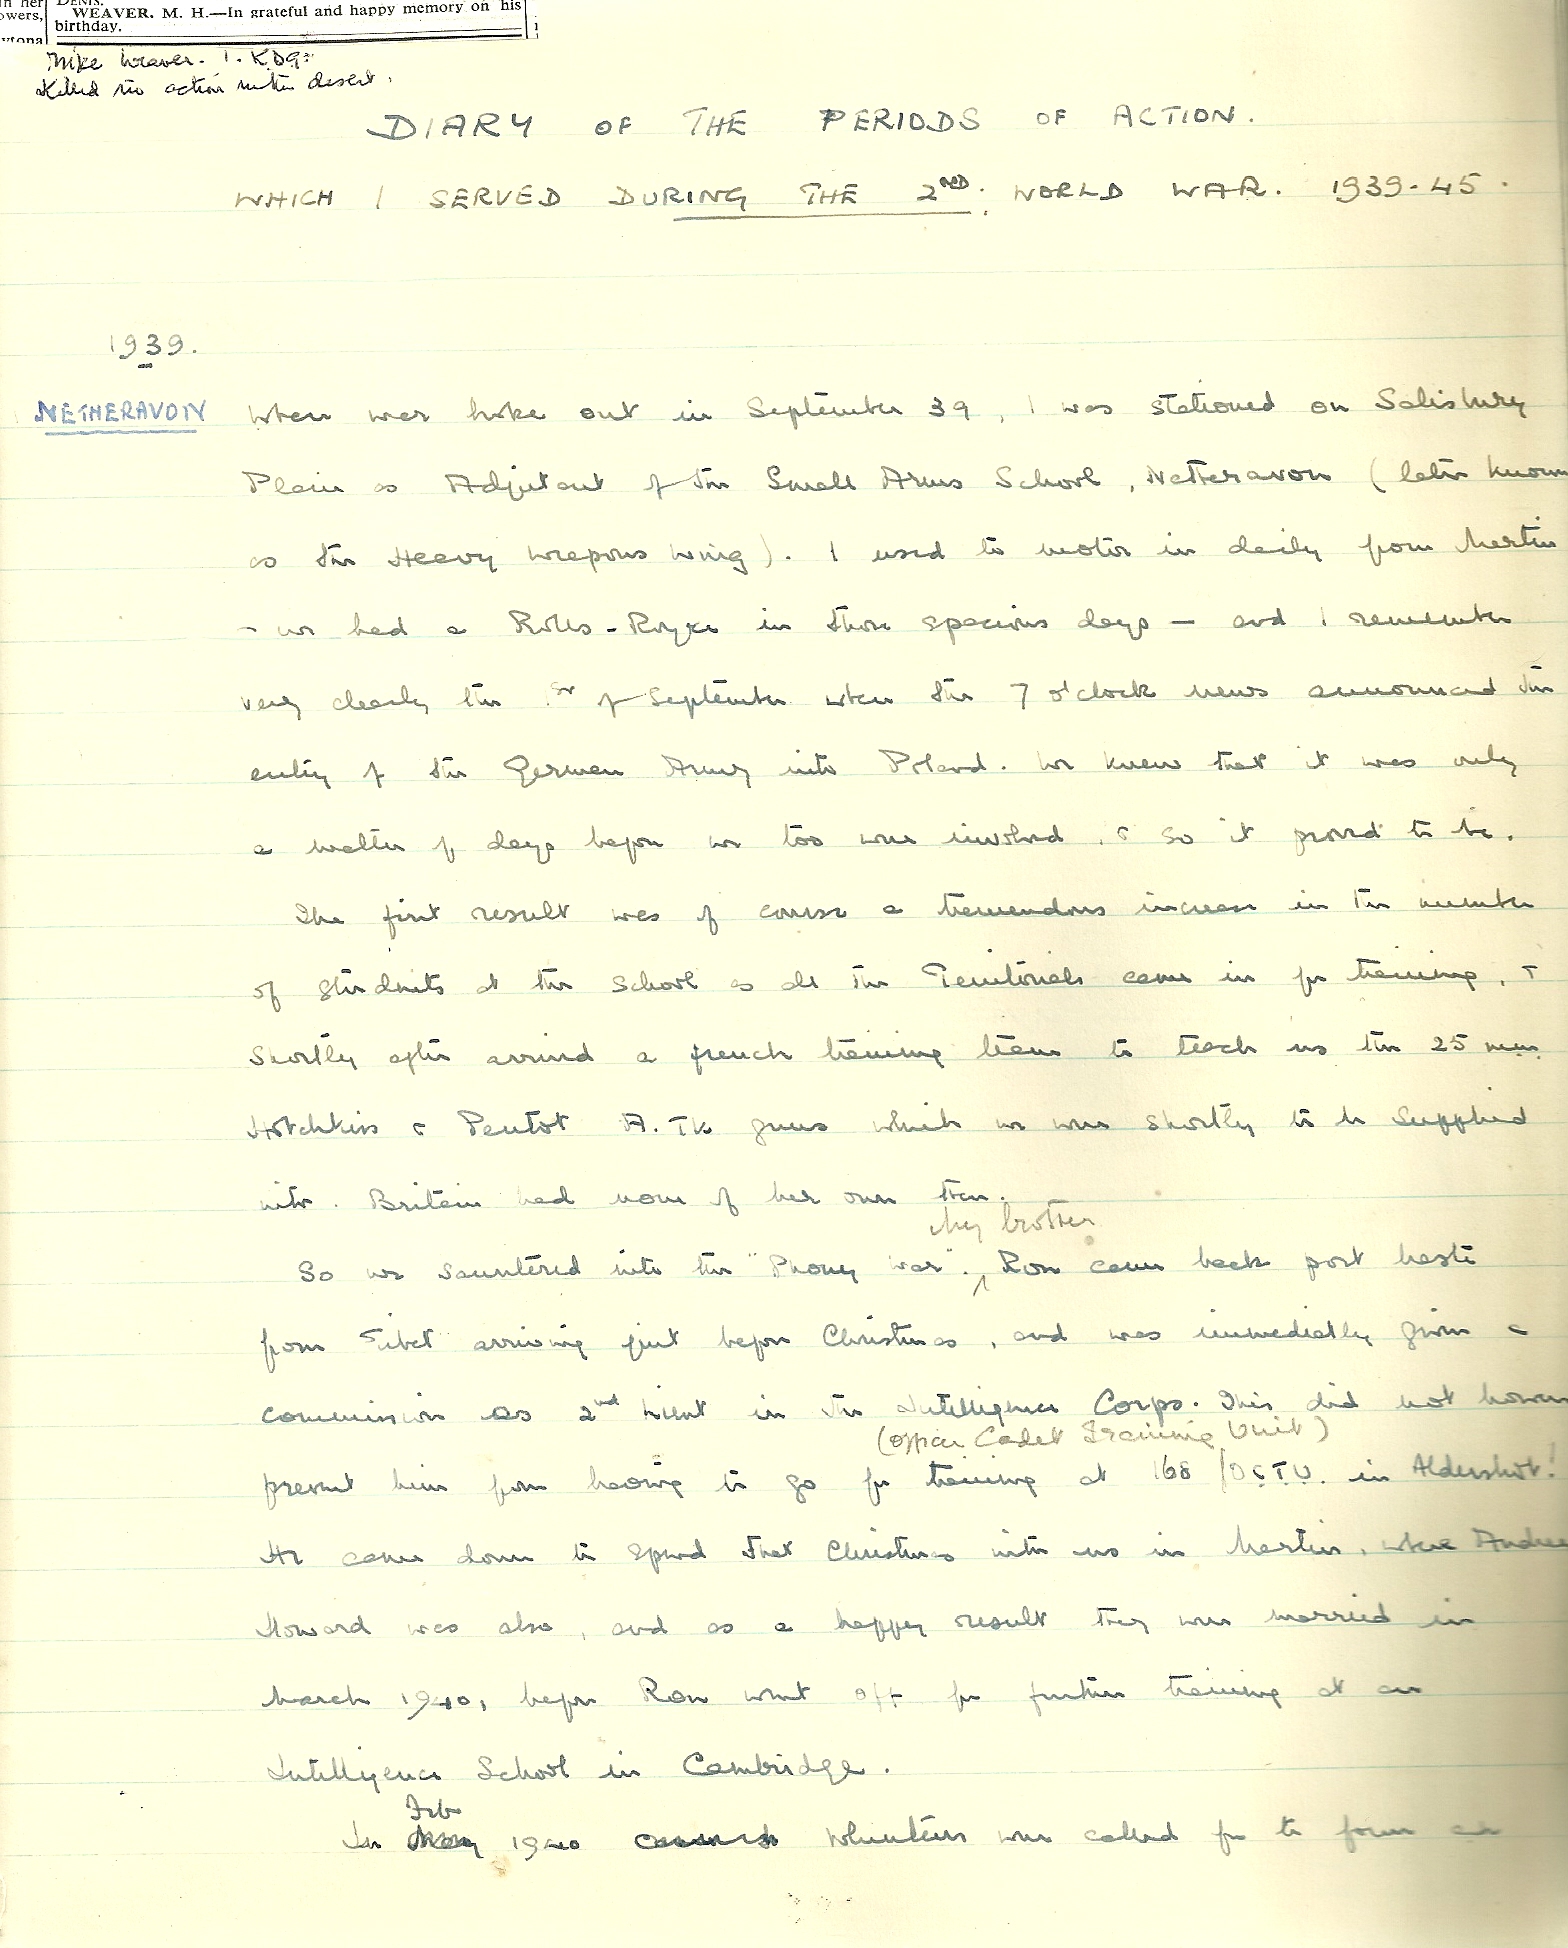 in her
owers,
DENIS.
WEAVER, M. H.—In grateful and happy memory on his
birthday.
Mike Weaver. 1. KDG.
Killed in action in the desert.
DIARY OF THE PERIODS OF ACTION.
WHICH I SERVED DURING THE 2ND. WORLD WAR. 1939-45.
1939.
NETHERAVON
When war broke out in September 39, I was stationed on Salisbury
Plain as Adjutant of the Small Arms School, Netheravon (later known
as the Heavy Weapons Wing). I used to motor in daily from Martin
- we had a Rolls-Royce in those spacious days - and I remember
very clearly the 1st of September when the 7 o'clock news announced the
entry of the German Army into Poland. We knew that it was only
a matter of days before we too were involved, & so it proved to be.
The first result was of course a tremendous increase in the number
of students at the School as all the Territorials came in for training, &
shortly after arrived a french training team to teach us the 25 mm.
Hotchkiss & A.TK guns which we were shortly to be supplied
with. Britain had none of her own then.
My brother
So we sauntered into the "Phoney War". Ron came back post haste
from Tibet arriving just before Christmas, and was immediatly given a
commission as 2nd Lieut in the Intelligence Corps. This did not however
(Officer Cadet Training Unit)
prevent him from having to go for training at 168 OCTU. in Aldershot!
He came down to spend that Christmas with us in Martin, where Andree
Howard was also, and as a happy result they were married in
March 1940, before Ron went off for further training at an
Intelligence School in Cambridge.
Feb
In May 1940 volunteers were called for to form an